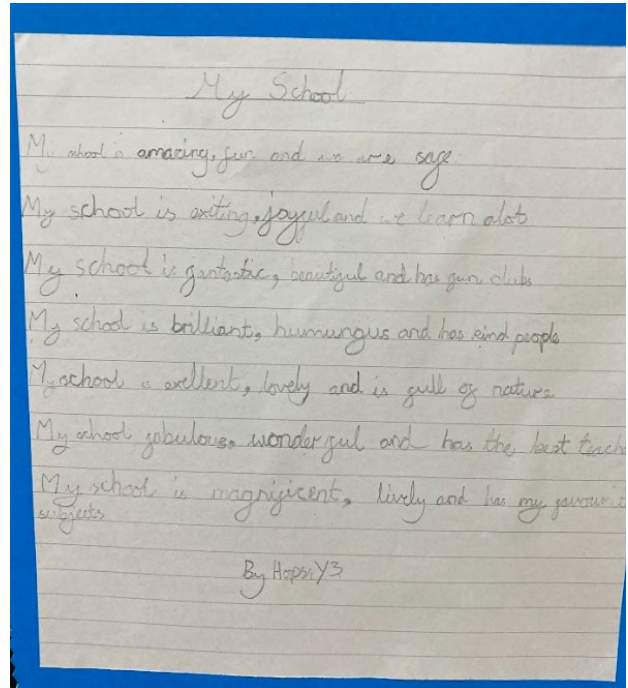 My School
My school is amazing, fun and we are safe
My school is exiting, joyful and we learn alot
My school is fantastic, beautiful and has fun clubs
My school is brilliant, humungus and has kind people
My school is exellent, lovely and is full of nature
My school fabulous, wonderful and has the best teach
My school is magnificent, lively and has my favourit
subjects
By Y3